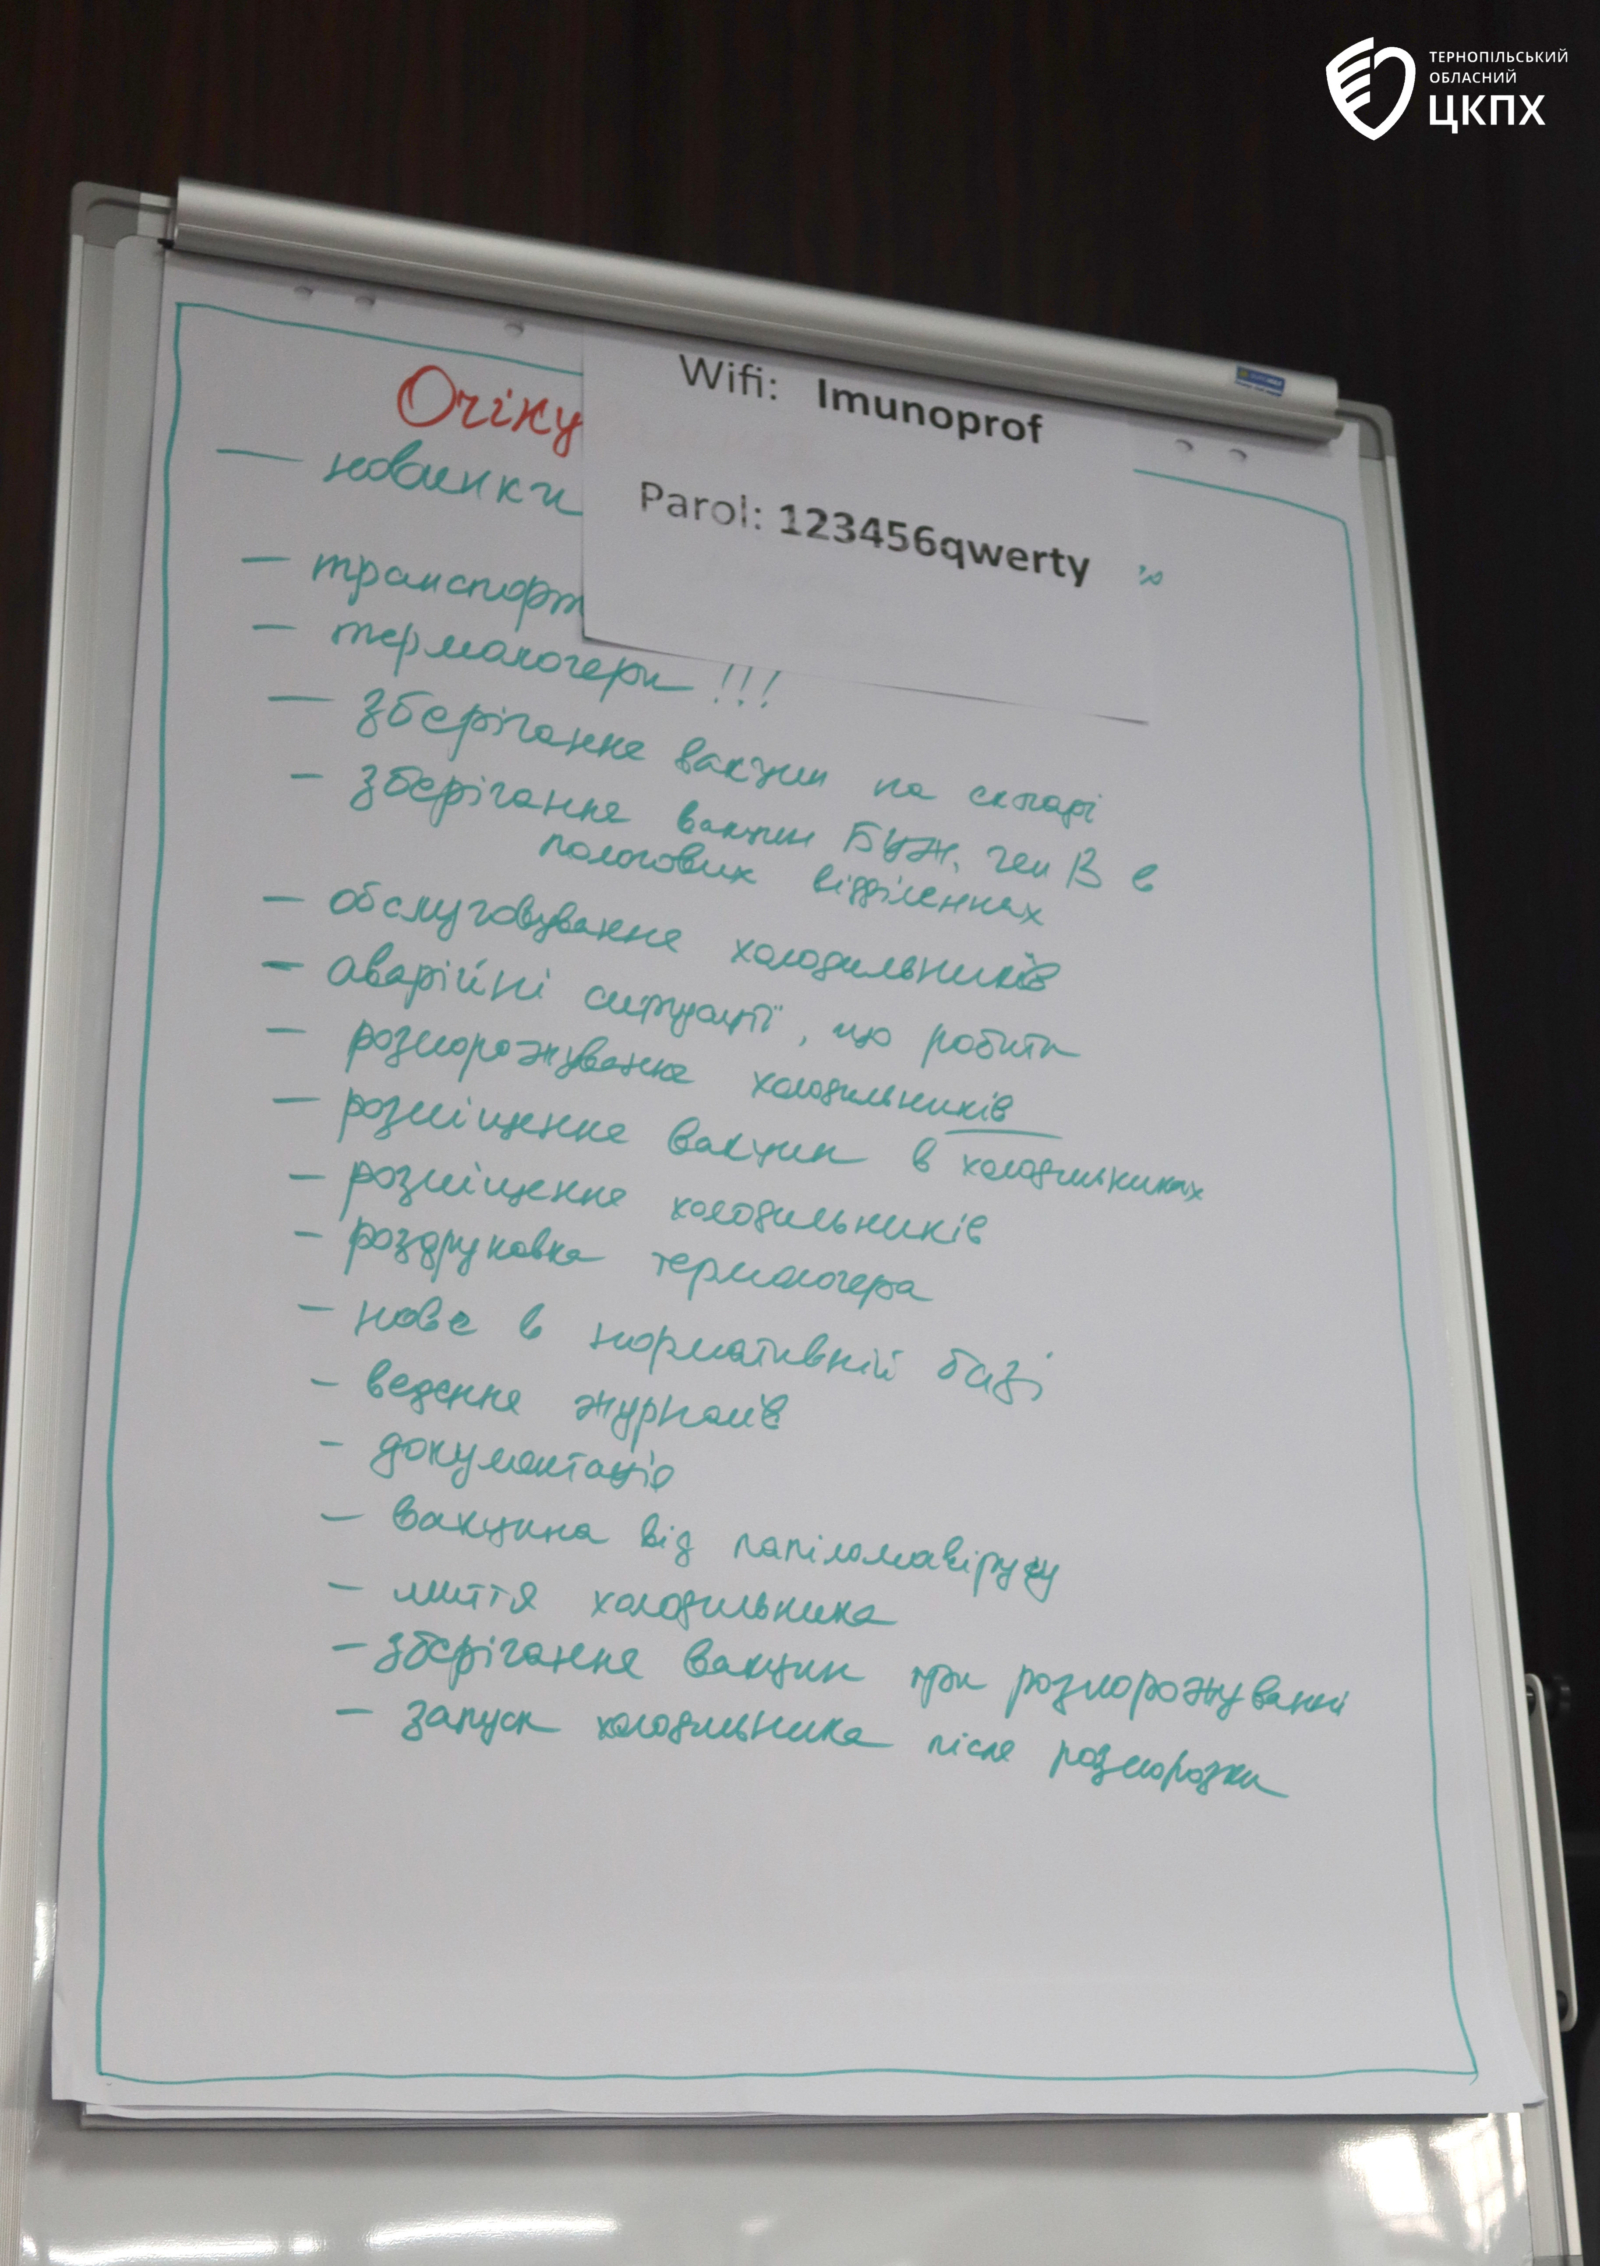 ТЕРНОПІЛЬСЬКИЙ
ОБЛАСНИЙ
ЦКПХ
Wifi: Imunoprof
Parol: 123456qwerty
Очіку
— новинки
— транспорт
— термологери !!!
— зберігання вакцин на складі
— зберігання вакцин БЦЖ, геп В в
пологових відділеннях
— обслуговування холодильників
— аварійні ситуації, що робити
— розморожування холодильників
— розміщення вакцин в холодильниках
— розміщення холодильників
— роздруковка термологера
— нове в нормативній базі
— ведення журналів
— документація
— вакцина від папіломавірусу
— миття холодильника
— зберігання вакцин при розморожуванні
— запуск холодильника після розморозки